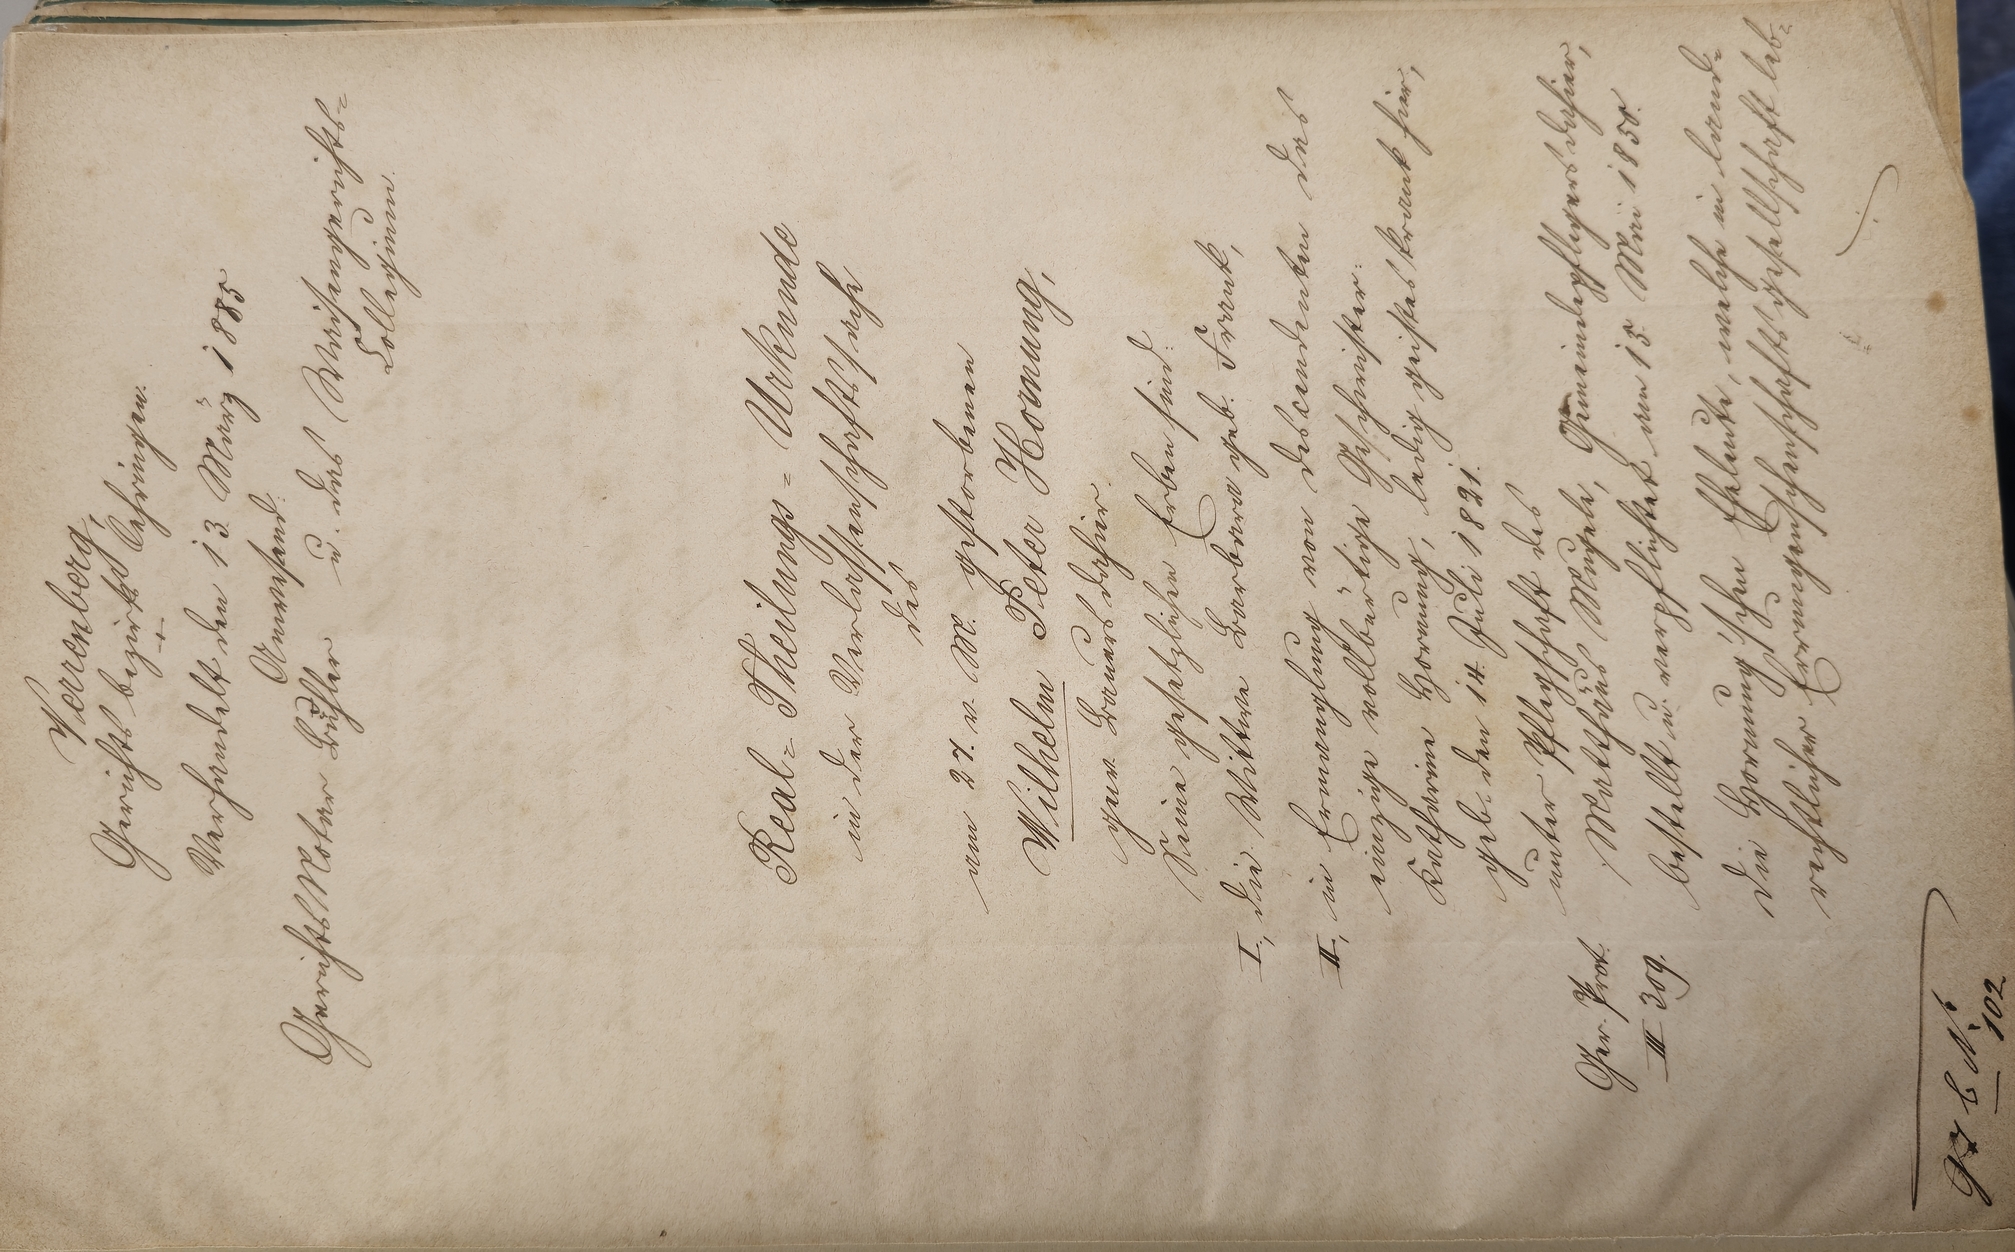 Verrenberg,
Gerichtsbezirks Oehringen.
Verhandelt den 13. März 1885
Anwesend:
GerichtsNotar Bühler u. das Waisengerichts=
Collegium.
Real= Theilungs= Urkunde
in der Verlassenschaftssache
des
am 27. v. M. gestorbenen
Wilhelm Peter Hornung,
gew. Bauers dahier.
Seine gesetzliche Erben sind:
I., die Wittwe Barbara geb. Frank,
II., in Ermanglung von Descendenten das
einzige vollbürtige Geschwister:
Katharine Hornung, ledig geisteskrank hier,
geb. den 14. Juli 1821.
unter Pflegschaft des
Ger. Prot. Matthäus Mugele, Gemeindepflegers dahier,
III 309. bestellt u. verpflichtet am 15. Mai 1850.
Die Hornung'schen Eheleute, welche in land=
rechtlicher Errungenschaftsgesellschaft leb=
102